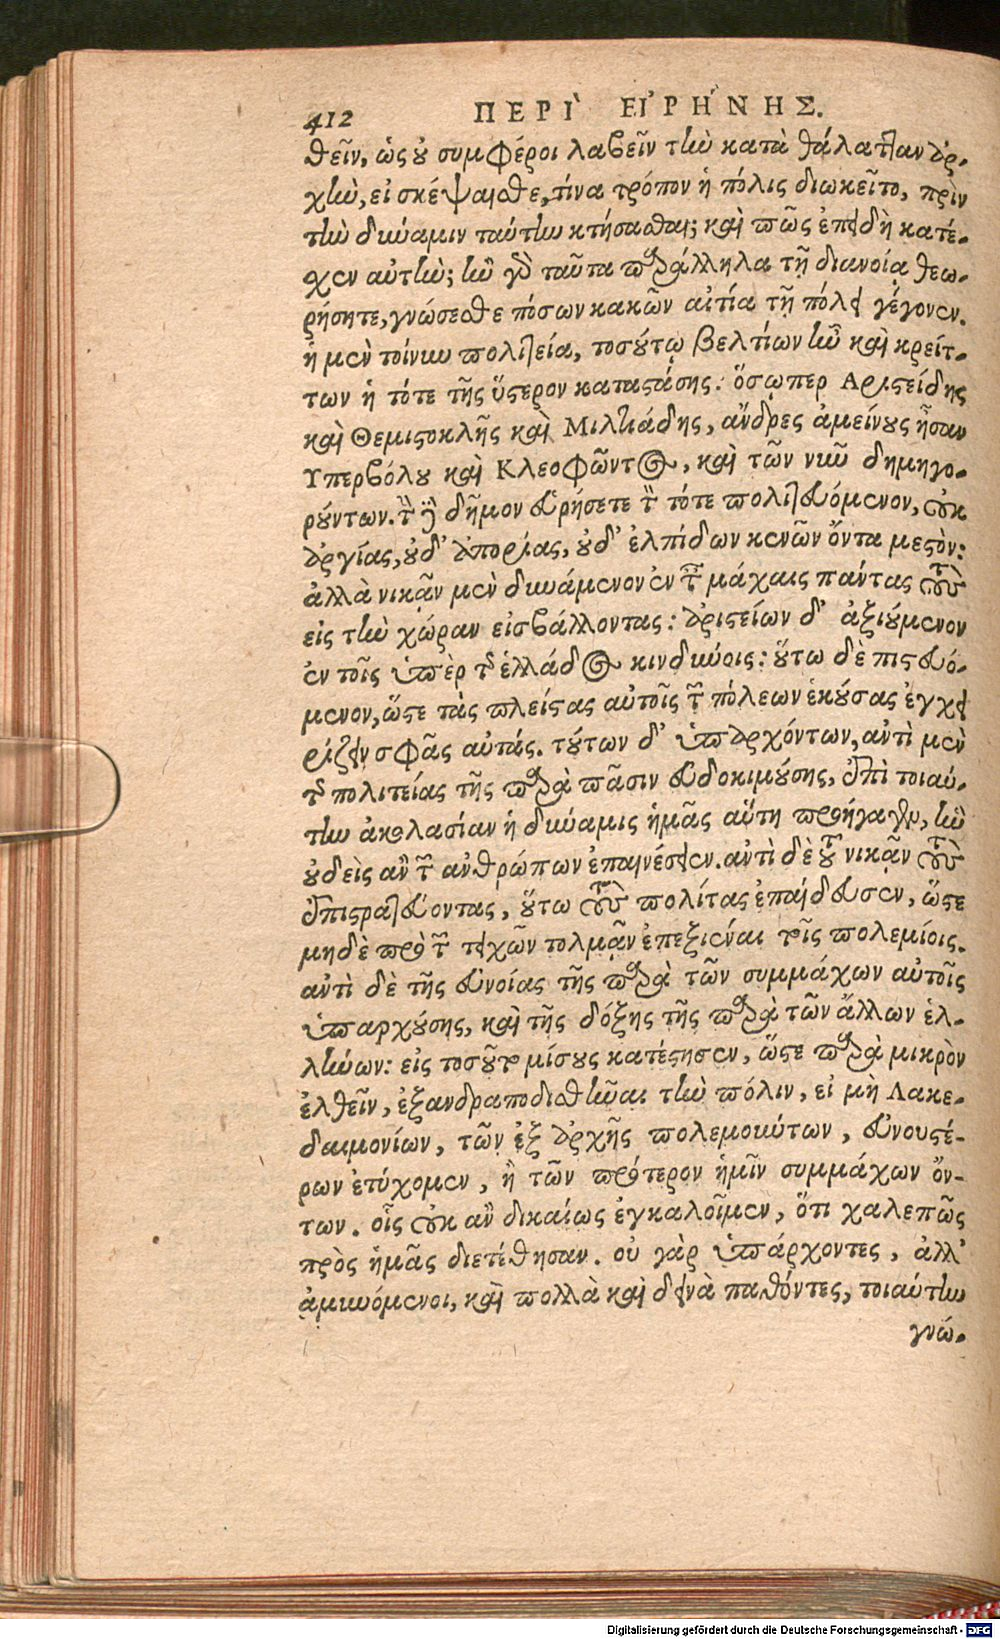 412 ΠΕΡΙ` ΕΙ᾿ΡΗ´ΝΗΣ.
θεῖν, ὡς οὐ συμφέροι λαβεῖν τὴν κατὰ θάλατταν ἀρ-
χὴν, εἰ σκέψαισθε, τίνα τρόπον ἡ πόλις διῳκεῖτο, πρὶν
τὴν δύναμιν ταύτην κτήσασθαι; καὶ πῶς ἐπειδὴ κατέ-
σχεν αὐτὴν; ἢν γὸ ταῦτα παράλληλα τῇ διανοίᾳ θεω-
ρήσητε, γνώσεσθε πόσων κακῶν αἰτία τῇ πόλει γέγονεν.
ἡ μὲν τοίνυν πολιτεία, τοσούτῳ βελτίων ἦν καὶ κρείτ-
των ἡ τότε τῆς ὕστερον καταστάσης· ὅσῳπερ Αριστείδης
καὶ Θεμιστοκλῆς καὶ Μιλτιάδης, ἄνδρες ἀμείνους ἦσαν
Υπερβόλου καὶ Κλεοφῶντος, καὶ τῶν νῦν δημηγο-
ρούντων. τὸν δὲ δῆμον εὑρήσετε τὸν τότε πολιτευόμενον, οὐκ
ἀργίας, οὐδ᾽ ἀπορίας, οὐδ᾽ ἐλπίδων κενῶν ὄντα μεστὸν:
ἀλλὰ νικᾷν μὲν δυνάμενον ἐν ταῖς μάχαις πάντας τοὺς
εἰς τὴν χώραν εἰσβάλλοντας: ἀριστείων δ᾽ ἀξιούμενον
ἐν τοῖς ὑπὲρ τῆς ἑλλάδος κινδύνοις: οὕτω δὲ πιστευό-
μενον, ὥστε τὰς πλείστας αὐτοῖς τῶν πόλεων ἑκούσας ἐγχει
ρίζειν σφᾶς αὐτάς. τούτων δ᾽ ὑπαρχόντων, ἀντὶ μὲν
τῆς πολιτείας τῆς παρὰ πᾶσιν εὐδοκιμούσης, ἐπὶ τοιαύ-
την ἀκολασίαν ἡ δύναμις ἡμᾶς αὕτη προήγαγεν, ἣν
οὐδεὶς ἂν τῶν ἀνθρώπων ἐπαινέσειεν. ἀντὶ δὲ τοῦ νικᾷν τοὺς
ἐπιστρατεύοντας, οὕτω τοὺς πολίτας ἐπαίδευσεν, ὥστε
μηδὲ πρὸ τῶν τειχῶν τολμᾷν ἐπεξιέναι τοῖς πολεμίοις.
ἀντὶ δὲ τῆς εὐνοίας τῆς παρὰ τῶν συμμάχων αὐτοῖς
ὑπαρχούσης, καὶ τῆς δόξης τῆς παρὰ τῶν ἄλλων ἑλ-
λήνων: εἰς τοσοῦτο μίσους κατέστησεν, ὥστε παρὰ μικρὸν
ἐλθεῖν, ἐξανδραποδισθῆναι τὴν πόλιν, εἰ μὴ Λακε-
δαιμονίων, τῶν ἐξ ἀρχῆς πολεμούντων, εὐνουστέ-
ρων ἐτύχομεν, ἢ τῶν πρότερον ἡμῖν συμμάχων ὄν-
των. οἷς οὐκ ἂν δικαίως ἐγκαλοῖμεν, ὅτι χαλεπῶς
πρὸς ἡμᾶς διετέθησαν. οὐ γὰρ ὑπάρχοντες, ἀλλ᾽
ἀμυνόμενοι, καὶ πολλὰ καὶ δεινὰ παθόντες, τοιαύτην
γνώ-
Digitalisierung gefördert durch die Deutsche Forschungsgemeinschaft - DFG